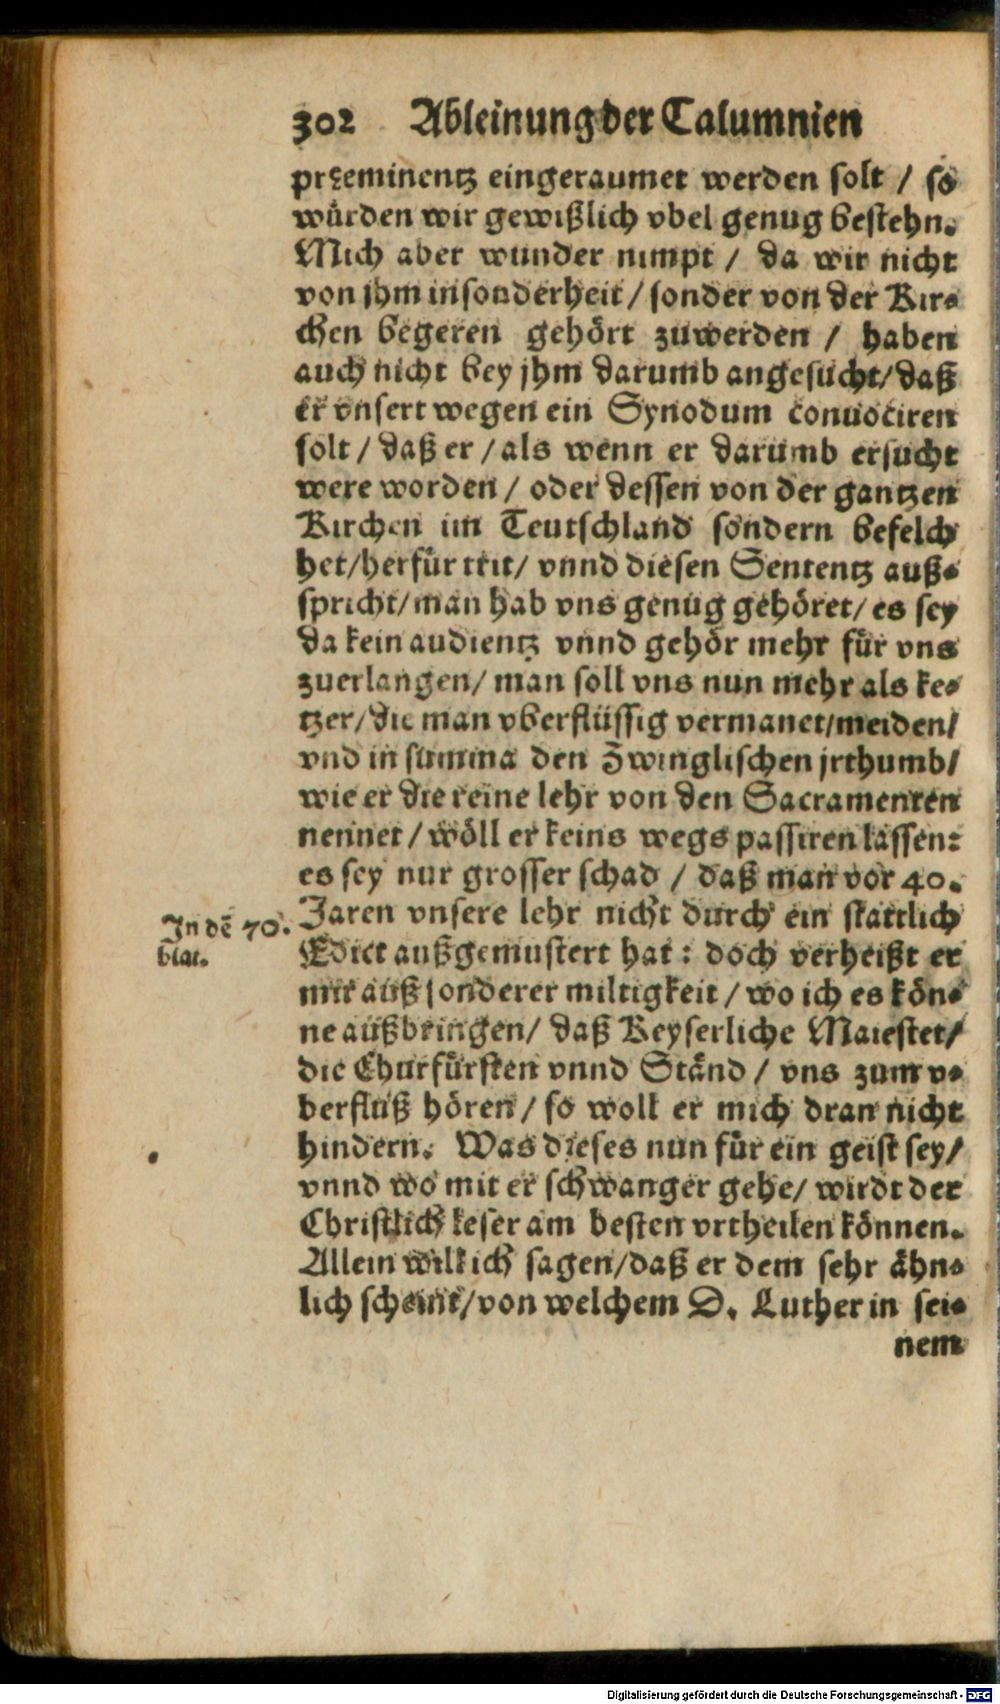 302 Ableinung der Calumnien
præeminentz eingeraumet werden solt / so
würden wir gewißlich vbel genug bestehn.
Mich aber wunder nimpt / da wir nicht
von jhm insonderheit / sonder von der Kir-
chen begeren gehört zuwerden / haben
auch nicht bey jhm darumb angesucht / daß
er vnsert wegen ein Synodum conuociren
solt / daß er / als wenn er darumb ersucht
were worden / oder dessen von der gantzen
Kirchen im Teutschland sondern befelch
het / herfür trit / vnnd diesen Sententz auß-
spricht / man hab vns genug gehöret / es sey
da kein audientz vnnd gehör mehr für vns
zuerlangen / man soll vns nun mehr als ke-
tzer / die man vberflüssig vermanet / meiden /
vnd in summa den Zwinglischen jrthumb /
wie er die reine lehr von den Sacramenten
nennet / wöll er keins wegs passiren lassen:
es sey nur grosser schad / daß man vor 40.
Jaren vnsere lehr nicht durch ein stattlich
In dē 70.
blat.
Edict außgemustert hat : doch verheißt er
mir auß sonderer miltigkeit / wo ich es kön-
ne außbringen / daß Keyserliche Maiestet /
die Churfürsten vnnd Ständ / vns zum v-
berfluß hören / so woll er mich dran nicht
hindern. Was dieses nun für ein geist sey /
vnnd wo mit er schwanger gehe / wirdt der
Christlich leser am besten vrtheilen können.
Allein will ich sagen / daß er dem sehr ähn-
lich scheint / von welchem D. Luther in sei-
nem
Digitalisierung gefördert durch die Deutsche Forschungsgemeinschaft - DFG